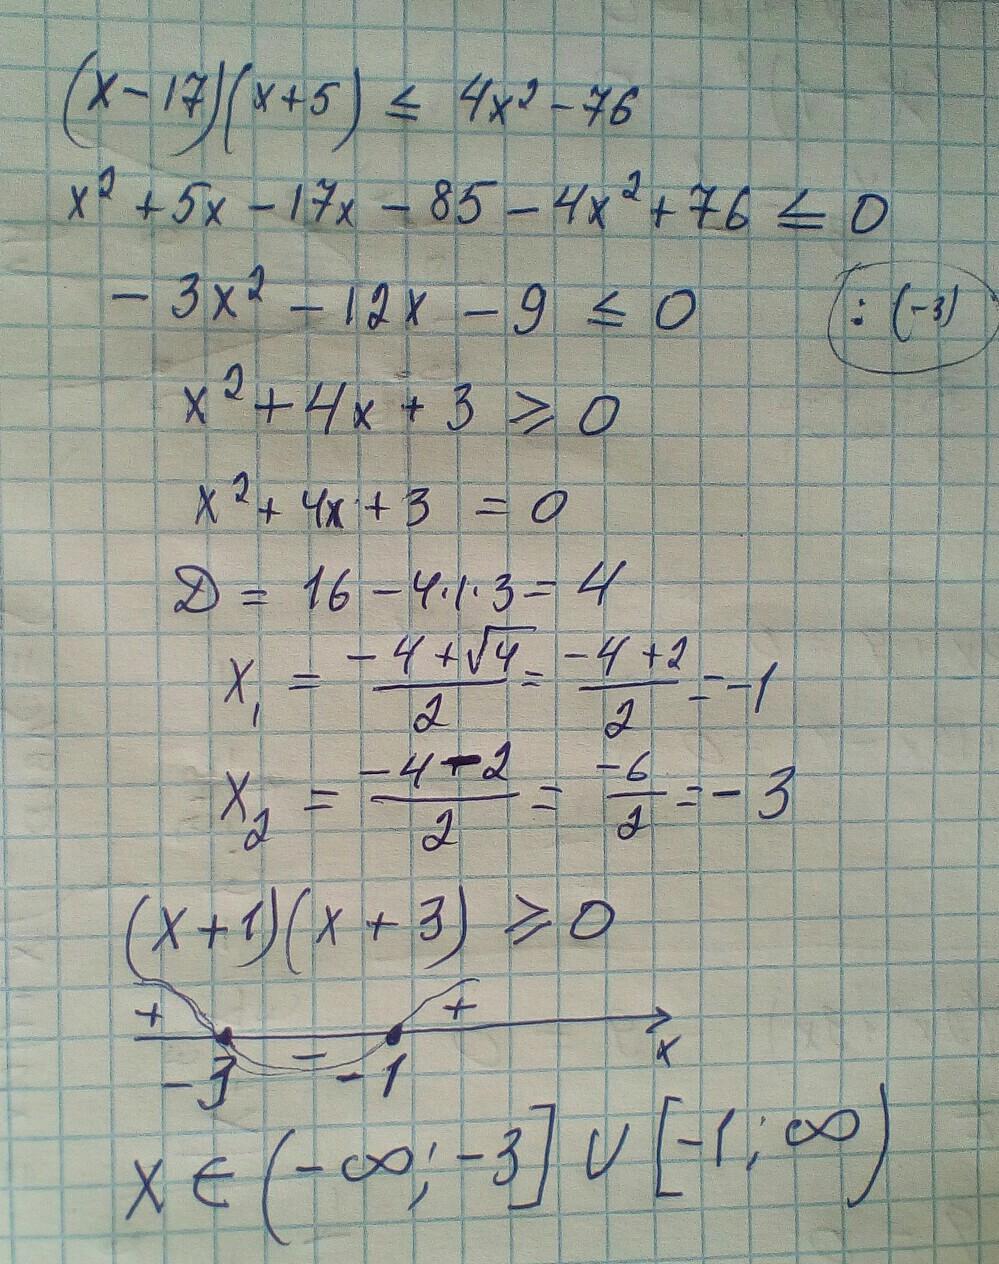 (x-17)(x+5) ≤ 4x²-76
x²+5x-17x-85-4x²+76 ≤ 0
-3x²-12x-9 ≤ 0 :(-3)
x²+4x+3 ⩾ 0
x²+4x+3 = 0
D = 16-4·1·3 = 4
x₁ = (-4+√4)/2 = (-4+2)/2 = -1
x₂ = (-4-2)/2 = -6/2 = -3
(x+1)(x+3) ⩾ 0
+ - +
-3 -1 x
x ∈ (-∞;-3] ∪ [-1;∞)